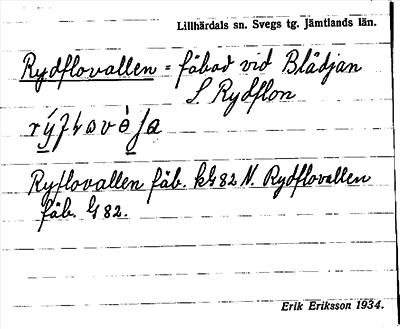 Lillhärdals sn. Svegs tg. Jämtlands län.
Rydflovallen = fäbod vid Blädjan
S. Rydflon
Ryflovallen fäb. kG82 N. Rydflovallen
fäb. G82.
Erik Eriksson 1934.